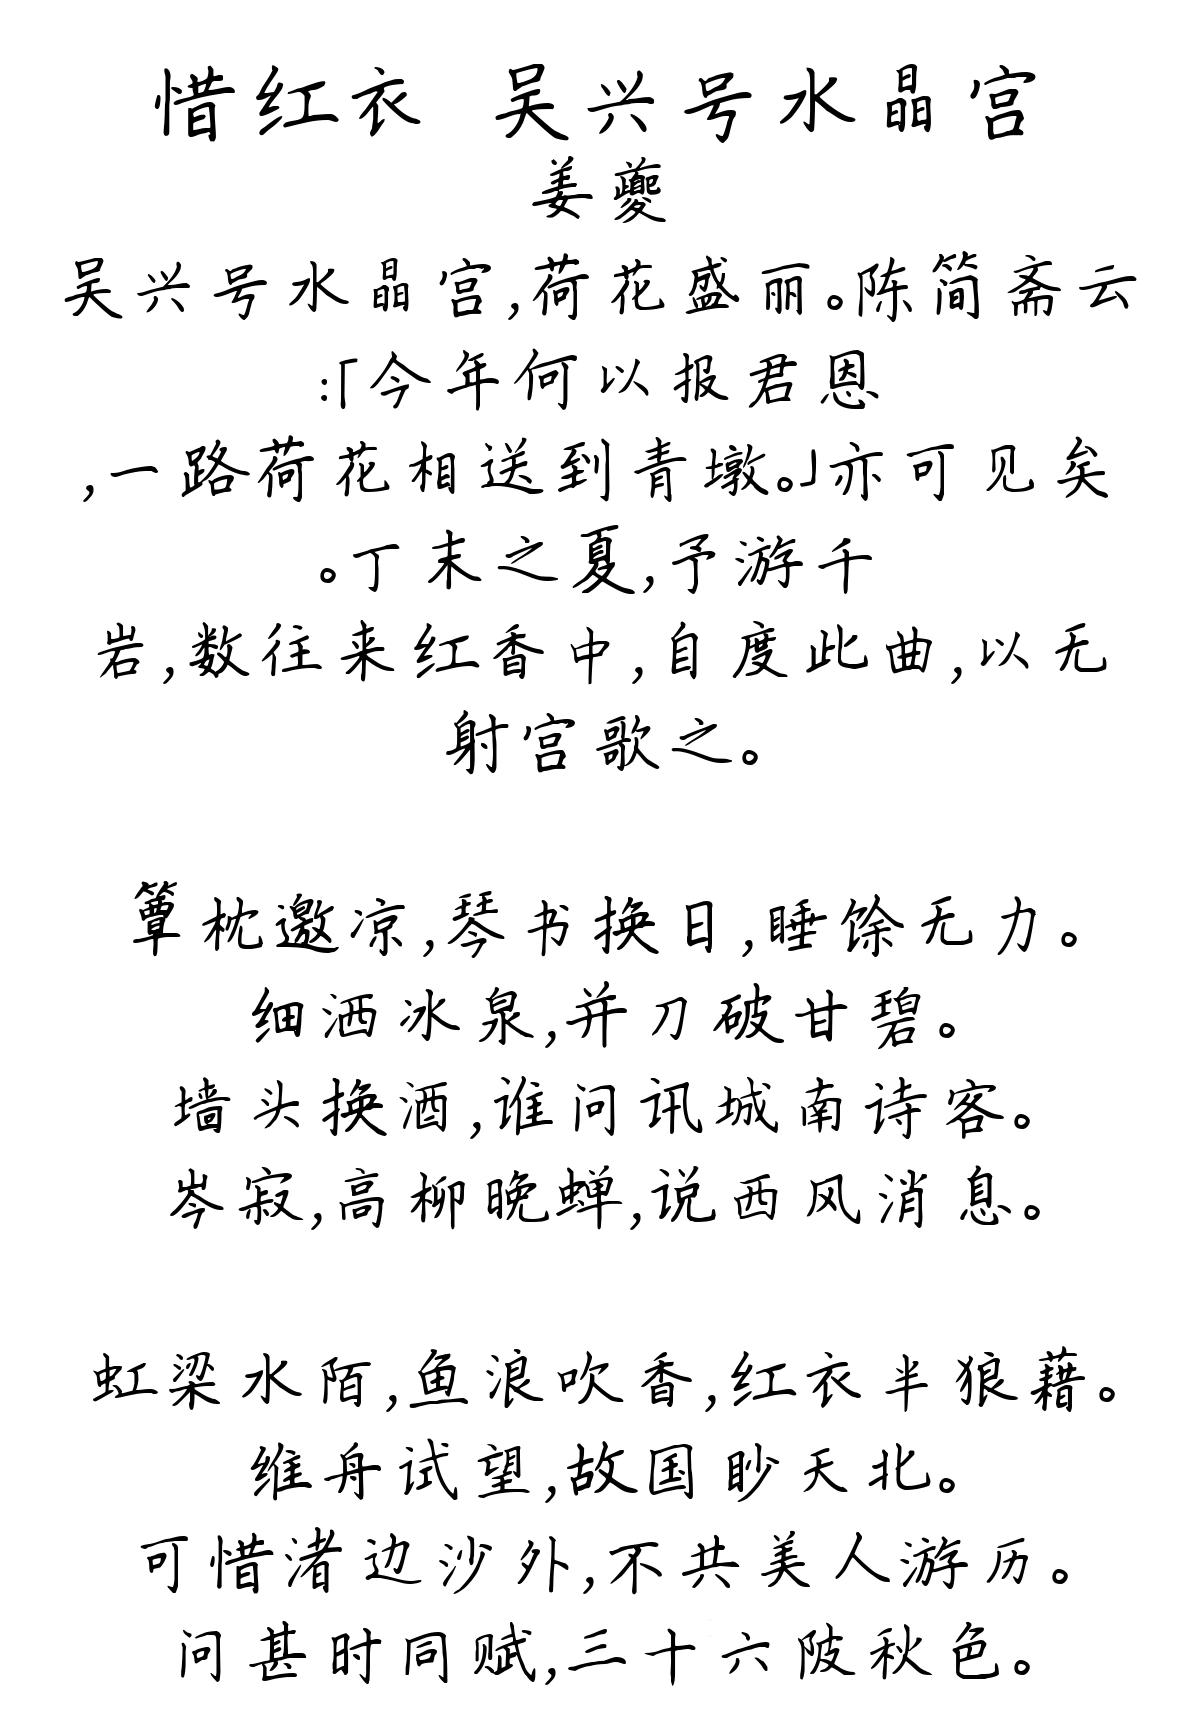 惜红衣 吴兴号水晶宫
姜夔
吴兴号水晶宫,荷花盛丽。陈简斋云
:「今年何以报君恩
,一路荷花相送到青墩。」亦可见矣
。丁末之夏,予游千
岩,数往来红香中,自度此曲,以无
射宫歌之。
簟枕邀凉,琴书换日,睡馀无力。
细洒冰泉,并刀破甘碧。
墙头换酒,谁问讯城南诗客。
岑寂,高柳晚蝉,说西风消息。
虹梁水陌,鱼浪吹香,红衣半狼藉。
维舟试望,故国眇天北。
可惜渚边沙外,不共美人游历。
问甚时同赋,三十六陂秋色。